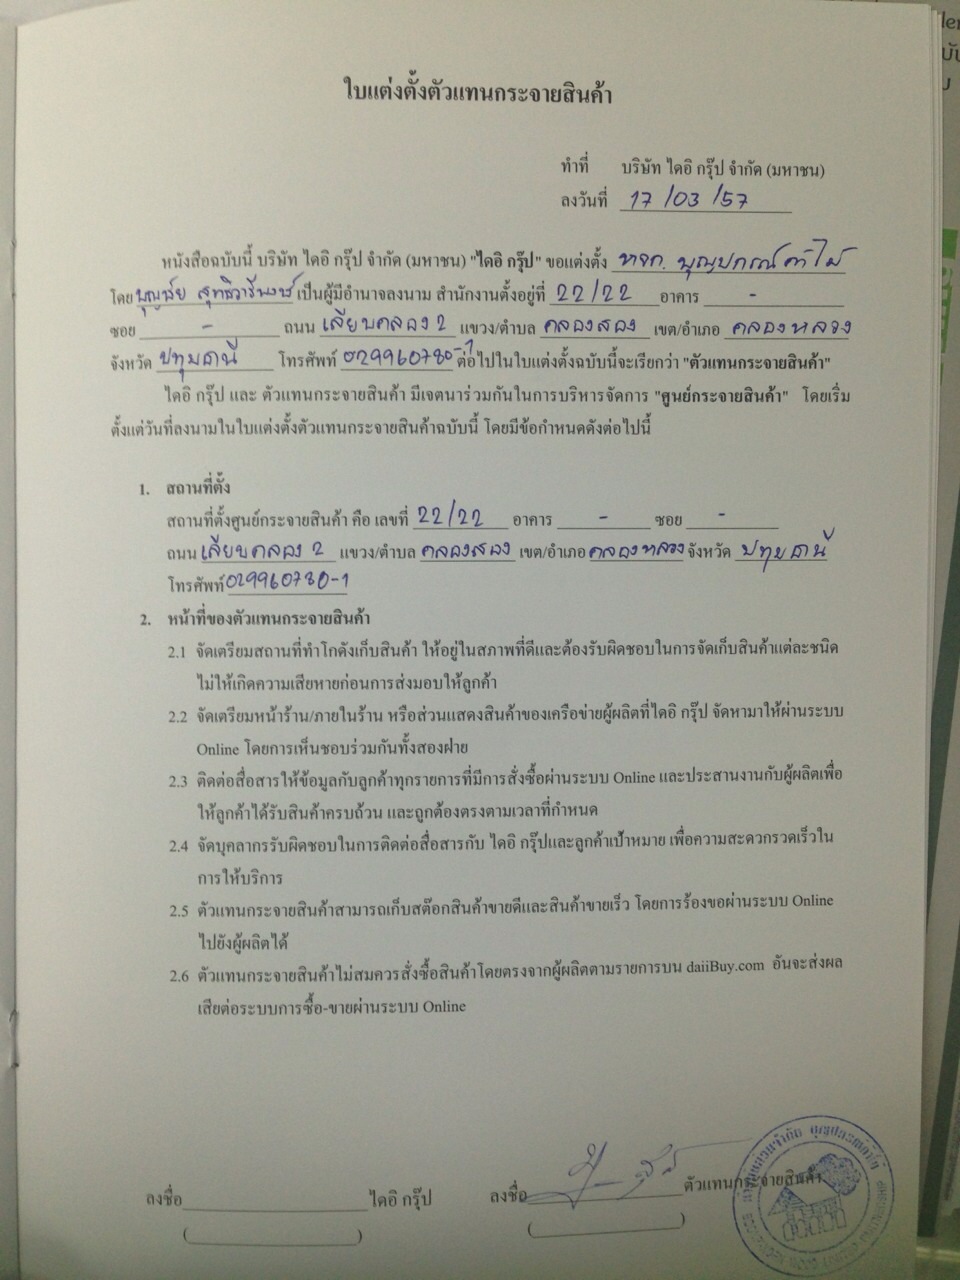 ใบแต่งตั้งตัวแทนกระจายสินค้า
ทำที่ บริษัท ไดอิ กรุ๊ป จำกัด (มหาชน)
ลงวันที่ 17 /03 /57
หนังสือฉบับนี้ บริษัท ไดอิ กรุ๊ป จำกัด (มหาชน) "ไดอิ กรุ๊ป" ขอแต่งตั้ง หจก. บุญปกรณ์ค้าไม้
โดย บุญชัย สุทธิวารีพงษ์ เป็นผู้มีอำนาจลงนาม สำนักงานตั้งอยู่ที่ 22/22 อาคาร -
ซอย - ถนน เลียบคลอง 2 แขวง/ตำบล คลองสอง เขต/อำเภอ คลองหลวง
จังหวัด ปทุมธานี โทรศัพท์ 029960780-1 ต่อไปในใบแต่งตั้งฉบับนี้จะเรียกว่า "ตัวแทนกระจายสินค้า"
ไดอิ กรุ๊ป และ ตัวแทนกระจายสินค้า มีเจตนาร่วมกันในการบริหารจัดการ "ศูนย์กระจายสินค้า" โดยเริ่ม
ตั้งแต่วันที่ลงนามในใบแต่งตั้งตัวแทนกระจายสินค้าฉบับนี้ โดยมีข้อกำหนดดังต่อไปนี้
1. สถานที่ตั้ง
สถานที่ตั้งศูนย์กระจายสินค้า คือ เลขที่ 22/22 อาคาร - ซอย -
ถนน เลียบคลอง 2 แขวง/ตำบล คลองสอง เขต/อำเภอ คลองหลวง จังหวัด ปทุมธานี
โทรศัพท์ 029960780-1
2. หน้าที่ของตัวแทนกระจายสินค้า
2.1 จัดเตรียมสถานที่ทำโกดังเก็บสินค้า ให้อยู่ในสภาพที่ดีและต้องรับผิดชอบในการจัดเก็บสินค้าแต่ละชนิด
ไม่ให้เกิดความเสียหายก่อนการส่งมอบให้ลูกค้า
2.2 จัดเตรียมหน้าร้าน/ภายในร้าน หรือส่วนแสดงสินค้าของเครือข่ายผู้ผลิตที่ไดอิ กรุ๊ป จัดหามาให้ผ่านระบบ
Online โดยการเห็นชอบร่วมกันทั้งสองฝ่าย
2.3 ติดต่อสื่อสารให้ข้อมูลกับลูกค้าทุกรายการที่มีการสั่งซื้อผ่านระบบ Online และประสานงานกับผู้ผลิตเพื่อ
ให้ลูกค้าได้รับสินค้าครบถ้วน และถูกต้องตรงตามเวลาที่กำหนด
2.4 จัดบุคลากรรับผิดชอบในการติดต่อสื่อสารกับ ไดอิ กรุ๊ปและลูกค้าเป้าหมาย เพื่อความสะดวกรวดเร็วใน
การให้บริการ
2.5 ตัวแทนกระจายสินค้าสามารถเก็บสต๊อกสินค้าขายดีและสินค้าขายเร็ว โดยการร้องขอผ่านระบบ Online
ไปยังผู้ผลิตได้
2.6 ตัวแทนกระจายสินค้าไม่สมควรสั่งซื้อสินค้าโดยตรงจากผู้ผลิตตามรายการบน daiiBuy.com อันจะส่งผล
เสียต่อระบบการซื้อ-ขายผ่านระบบ Online
ลงชื่อ ไดอิ กรุ๊ป ลงชื่อ ตัวแทนกระจายสินค้า
( ) ( )